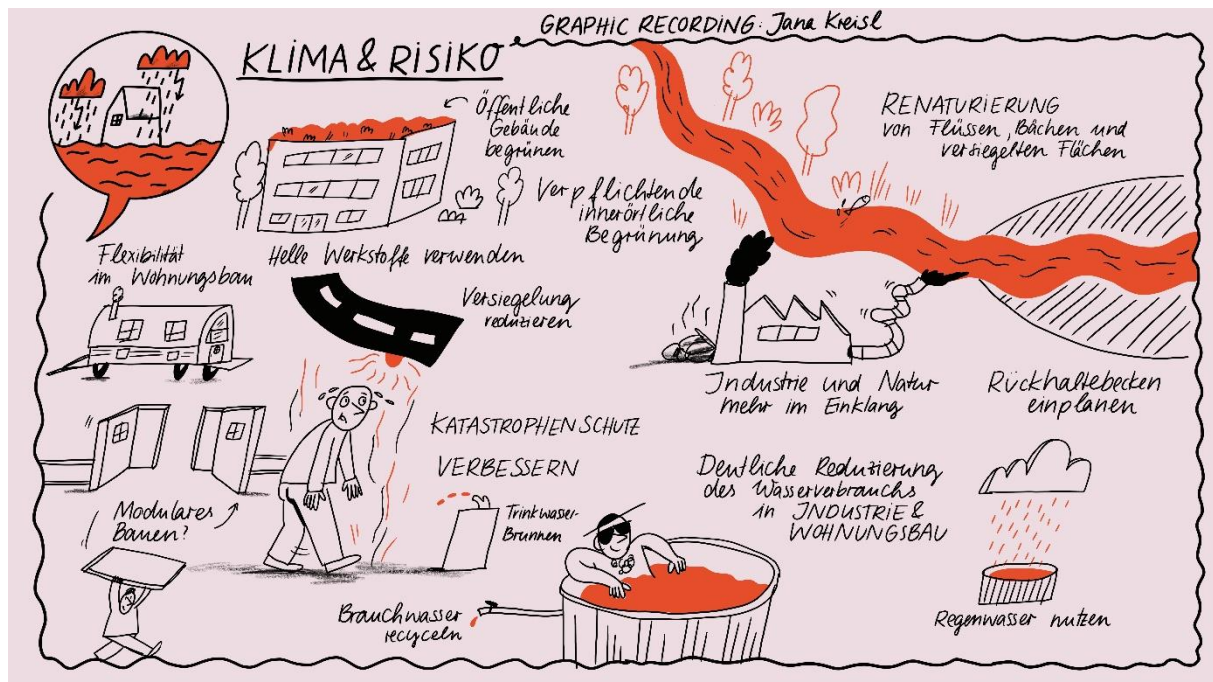 GRAPHIC RECORDING: Jana Kreisl
KLIMA & RISIKO
Öffentliche
Gebäude
begrünen
RENATURIERUNG
von Flüssen, Bächen und
versiegelten Flächen
Verpflichtende
innerörtliche
Begrünung
Flexibilität
im Wohnungsbau
Helle Werkstoffe verwenden
Versiegelung
reduzieren
Industrie und Natur
mehr im Einklang
Rückhaltebecken
einplanen
KATASTROPHENSCHUTZ
VERBESSERN
Modulares
Bauen?
Trinkwasser-
Brunnen
Deutliche Reduzierung
des Wasserverbrauchs
in INDUSTRIE &
WOHNUNGSBAU
Brauchwasser
recyceln
Regenwasser nutzen